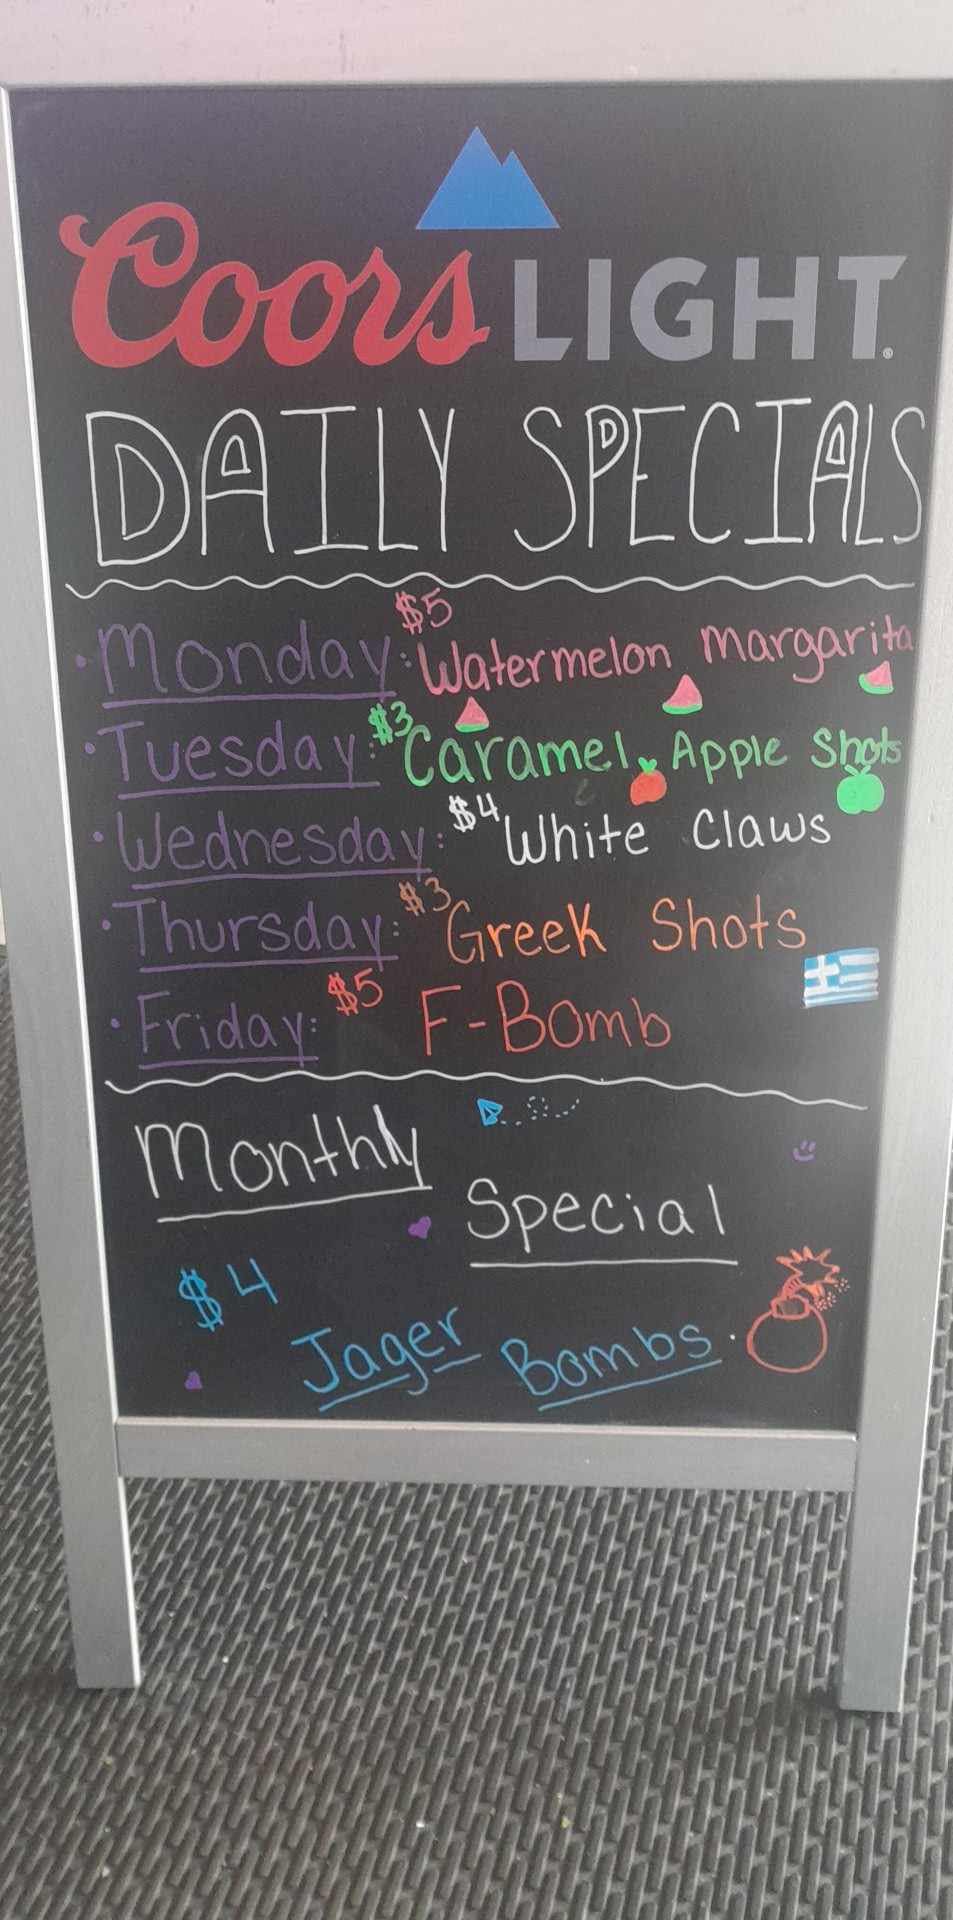 Coors LIGHT®
DAILY SPECIALS
• Monday: $5 Watermelon Margarita
• Tuesday: $3 Caramel Apple Shots
• Wednesday: $4 White Claws
• Thursday: $3 Greek Shots
• Friday: $5 F-Bomb
Monthly
Special
$4
Jager Bombs